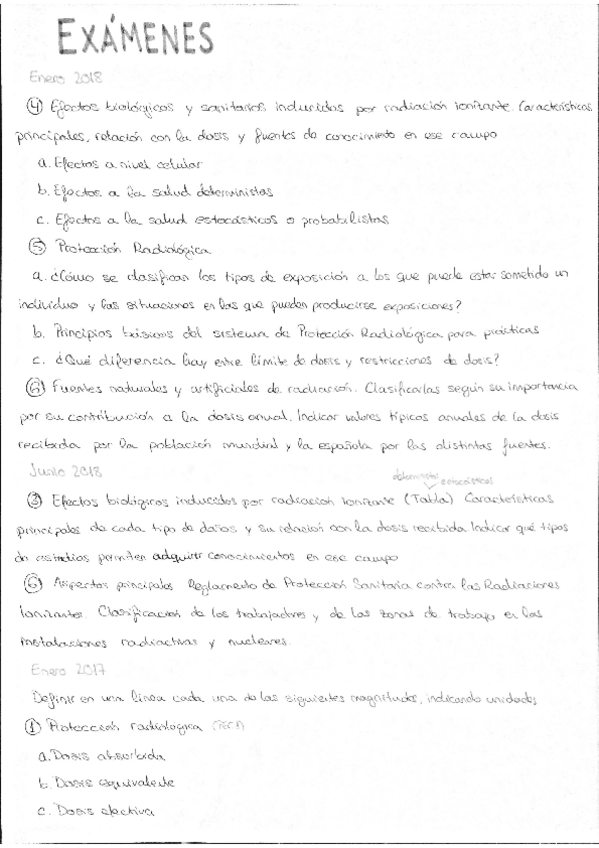 EXÁMENES
Enero 2018
④ Efectos biológicos y sanitarios inducidos por radiación ionizante. Características
principales, relación con la dosis y fuentes de conocimiento en ese campo
a. Efectos a nivel celular
b. Efectos a la salud deterministas
c. Efectos a la salud estocásticos o probabilistas
⑤ Protección Radiológica
a. ¿Cómo se clasifican los tipos de exposición a los que puede estar sometido un
individuo y las situaciones en las que pueden producirse exposiciones?
b. Principios básicos del sistema de Protección Radiológica para prácticas
c. ¿Qué diferencia hay entre límite de dosis y restricciones de dosis?
⑥ Fuentes naturales y artificiales de radiación. Clasificarlas según su importancia
por su contribución a la dosis anual. Indicar valores típicos anuales de la dosis
recibida por la población mundial y la española por las distintas fuentes.
Junio 2018
deterministas
estocásticos
③ Efectos biológicos inducidos por radiación ionizante (Tabla) Características
principales de cada tipo de daños y su relación con la dosis recibida Indicar qué tipos
de estudios permiten adquirir conocimientos en ese campo
⑥ Aspectos principales Reglamento de Protección Sanitaria contra las Radiaciones
Ionizantes. Clasificación de los trabajadores y de las zonas de trabajo en las
instalaciones radiactivas y nucleares.
Enero 2017
Definir en una línea cada una de las siguientes magnitudes, indicando unidades
① Protección radiológica
a. Dosis absorbida
b. Dosis equivalente
c. Dosis efectiva